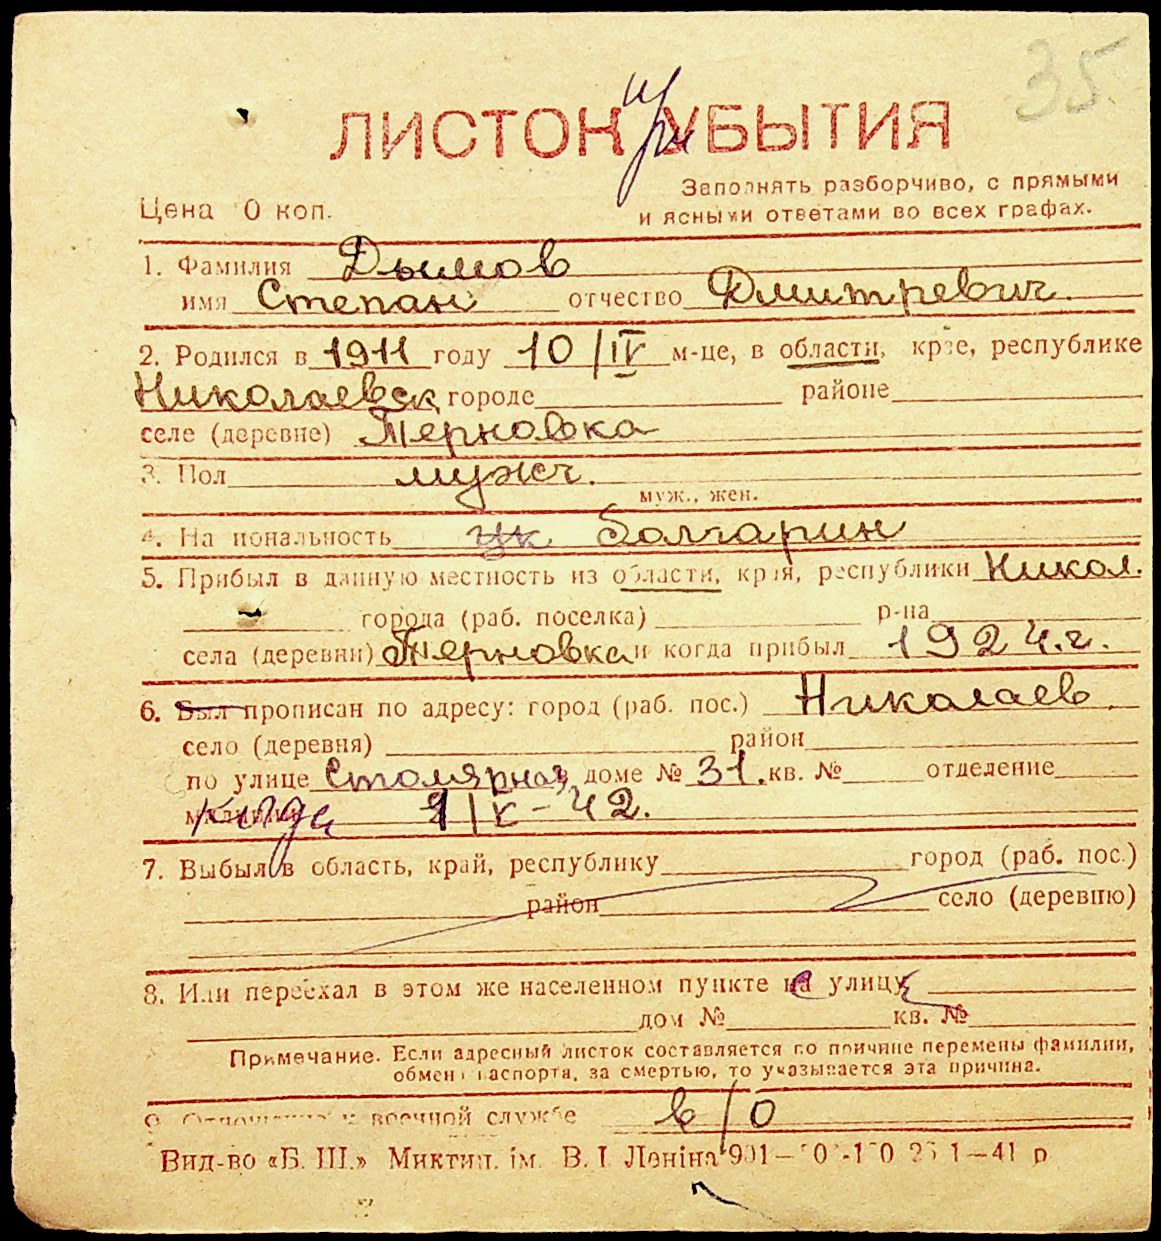 35
ЛИСТОК при УБЫТИЯ
Заполнять разборчиво, с прямыми
Цена 0 коп.
и ясными ответами во всех графах.
1. Фамилия Дымов
имя Степан отчество Дмитревич.
2. Родился в 1911 году 10/IV м-це, в области, крае, республике
Николаевск городе районе
селе (деревне) Терновка
3. Пол мужч.
муж., жен.
4. Национальность ук болгарин
5. Прибыл в данную местность из области, края, республики Никол.
города (раб. поселка) р-на
села (деревни) Терновка и когда прибыл 1924.г.
6. Был прописан по адресу: город (раб. пос.) Николаев
село (деревня) район
по улице Столярная, доме № 31. кв. № отделение
милиции когда 42.
7. Выбыл в область, край, республику город (раб. пос.)
район село (деревню)
8. Или переехал в этом же населенном пункте на улицу
дом № кв. №
Примечание. Если адресный листок составляется по причине перемены фамилии,
обмена паспорта, за смертью, то указывается эта причина.
9. Отношение к военной службе в/о
Вид-во «Б. Ш.» Миктип. ім. В. І. Леніна 1—41 р